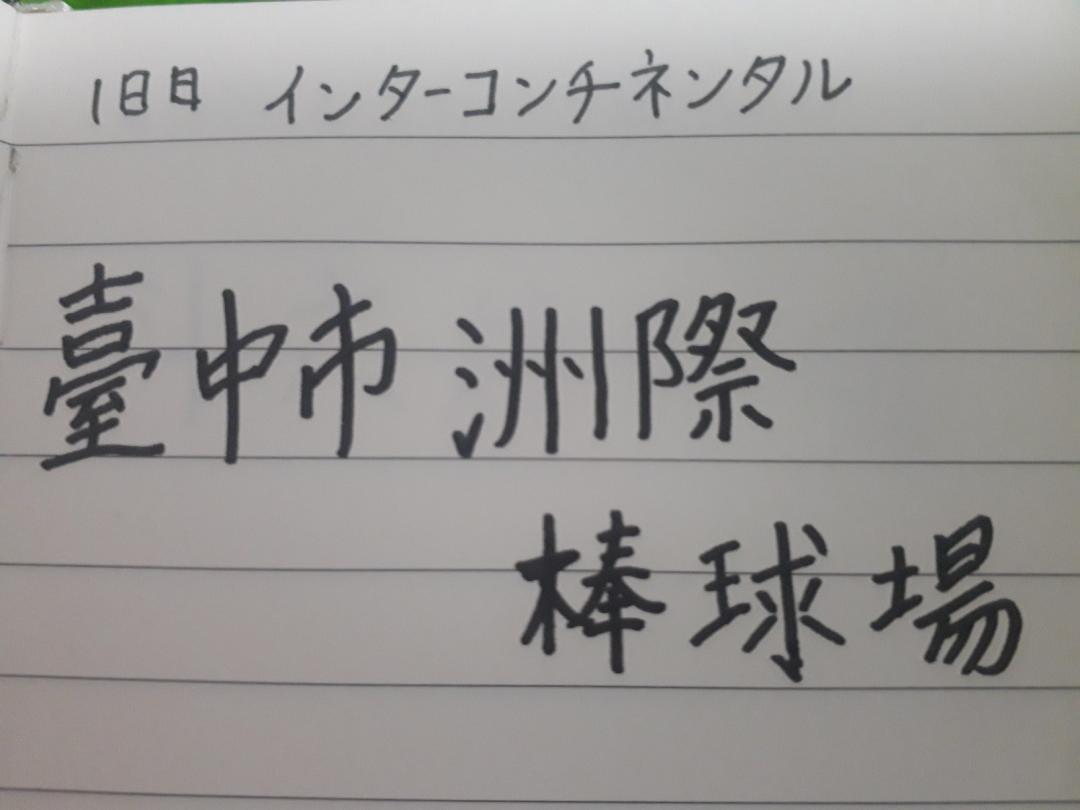 1日目 インターコンチネンタル
臺中市 洲際
棒球場